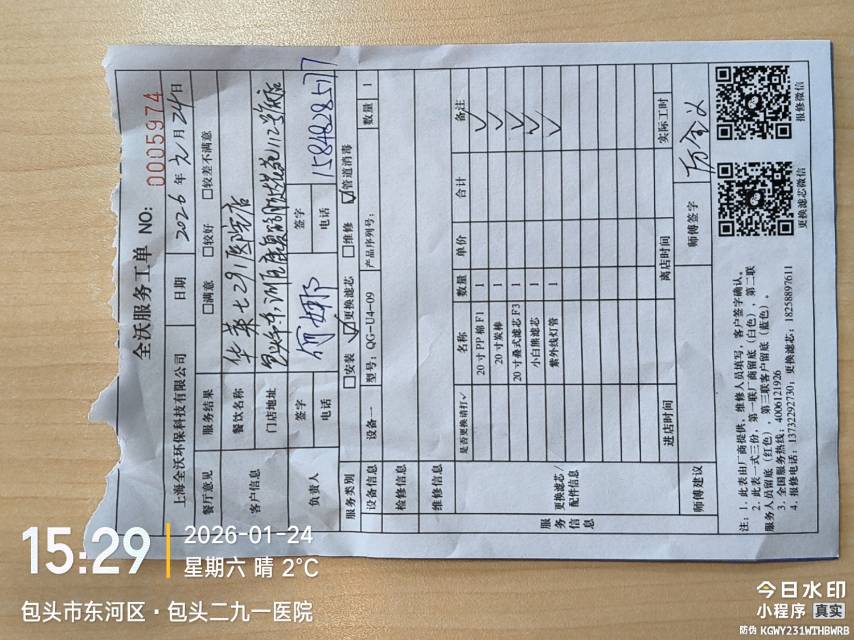 全沃服务工单 NO: 0005974
上海全沃环保科技有限公司 日期 2026年元月24日
餐厅意见 服务结果 □满意 □较好 □较差不满意
客户信息 餐饮名称 华莱士291医院店
门店地址
负责人 签字 何娜 签字
电话 电话 15848285177
服务类别 □安装 ☑更换滤芯 □维修 ☑管道消毒
设备信息 设备一 型号: QG-U4-09 产品序列号: 数量 1
检修信息
维修信息
服务信息 更换滤芯/配件信息 是否更换请打✓ 名称 数量 单价 合计 备注
20寸PP棉F1 1 ✓
20寸炭棒 1 ✓
20寸叠式滤芯F3 1 ✓
小白熊滤芯 1 ✓
紫外线灯管 1 ✓
进店时间 离店时间 实际工时
师傅建议 师傅签字
注: 1. 此表由厂商提供、维修人员填写, 客户签字确认。
2. 此表一式三份, 第一联厂商留底(白色), 第二联
服务人员留底(红色), 第三联客户留底(蓝色)。
3. 全国服务热线: 4006121926
4. 报修电话: 13732292730; 更换滤芯: 18258897611
更换滤芯微信 报修微信
15:29
2026-01-24
星期六 晴 2°C
包头市东河区·包头二九一医院
今日水印
小程序 真实
防伪 KGWY231WTHBWRB